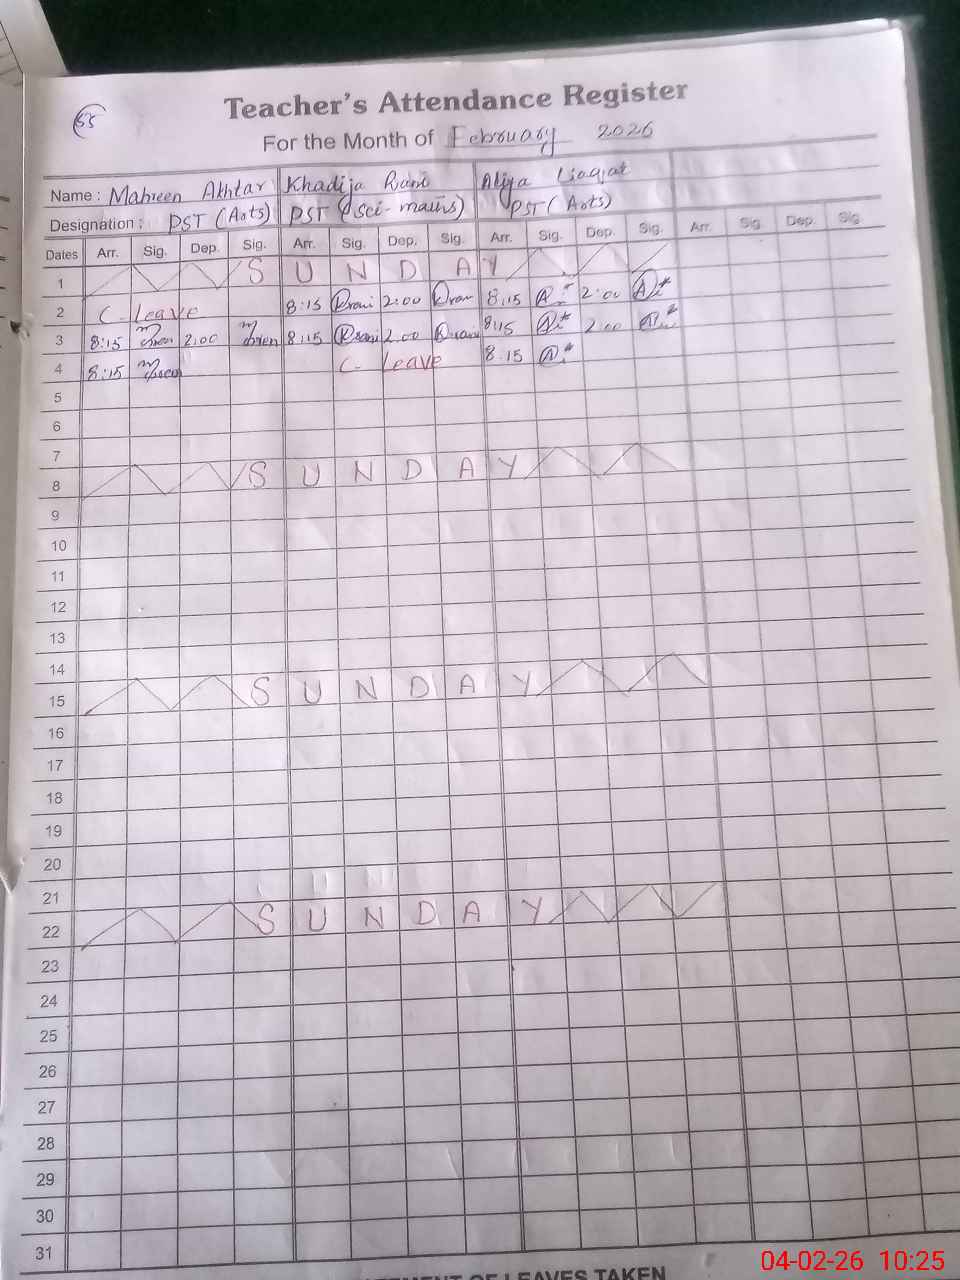 55
Teacher's Attendance Register
For the Month of February 2026
Name : Mahreen Akhtar Khadija Rani Aliya Liaqat
Designation : PST (Arts) PST (Sci-maths) PST (Arts)
Dates Arr. Sig. Dep. Sig. Arr. Sig. Dep. Sig. Arr. Sig. Dep. Sig. Arr. Sig. Dep. Sig.
1 S U N D A Y
2 C- Leave 8:15 Rani 2:00 8:15 2:00
3 8:15 2:00 8:15 Rani 2:00 Rani 8:15 2:00
4 8:15 C- Leave 8:15
5
6
7
8 S U N D A Y
9
10
11
12
13
14
15 S U N D A Y
16
17
18
19
20
21
22 S U N D A Y
23
24
25
26
27
28
29
30
31
OF LEAVES TAKEN
04-02-26 10:25